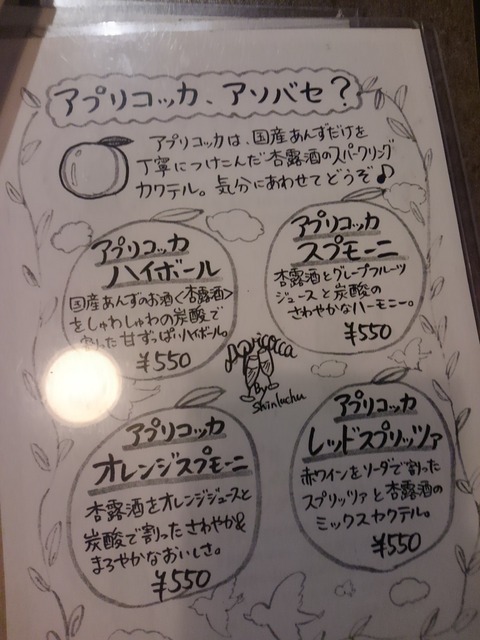 アプリコッカ、アソバセ？
アプリコッカは、国産あんずだけを
丁寧につけこんだ杏露酒のスパークリング
カクテル。気分にあわせてどうぞ♪
アプリコッカ
ハイボール
国産あんずのお酒〈杏露酒〉
をしゅわしゅわの炭酸で
割った甘ずっぱいハイボール。
¥550
アプリコッカ
スプモーニ
杏露酒とグレープフルーツ
ジュースと炭酸の
さわやかなハーモニー。
¥550
Apricocca
By
Shinluchu
アプリコッカ
オレンジスプモーニ
杏露酒をオレンジジュースと
炭酸で割ったさわやか&
まろやかなおいしさ。
¥550
アプリコッカ
レッドスプリッツァ
赤ワインをソーダで割った
スプリッツァと杏露酒の
ミックスカクテル。
¥550